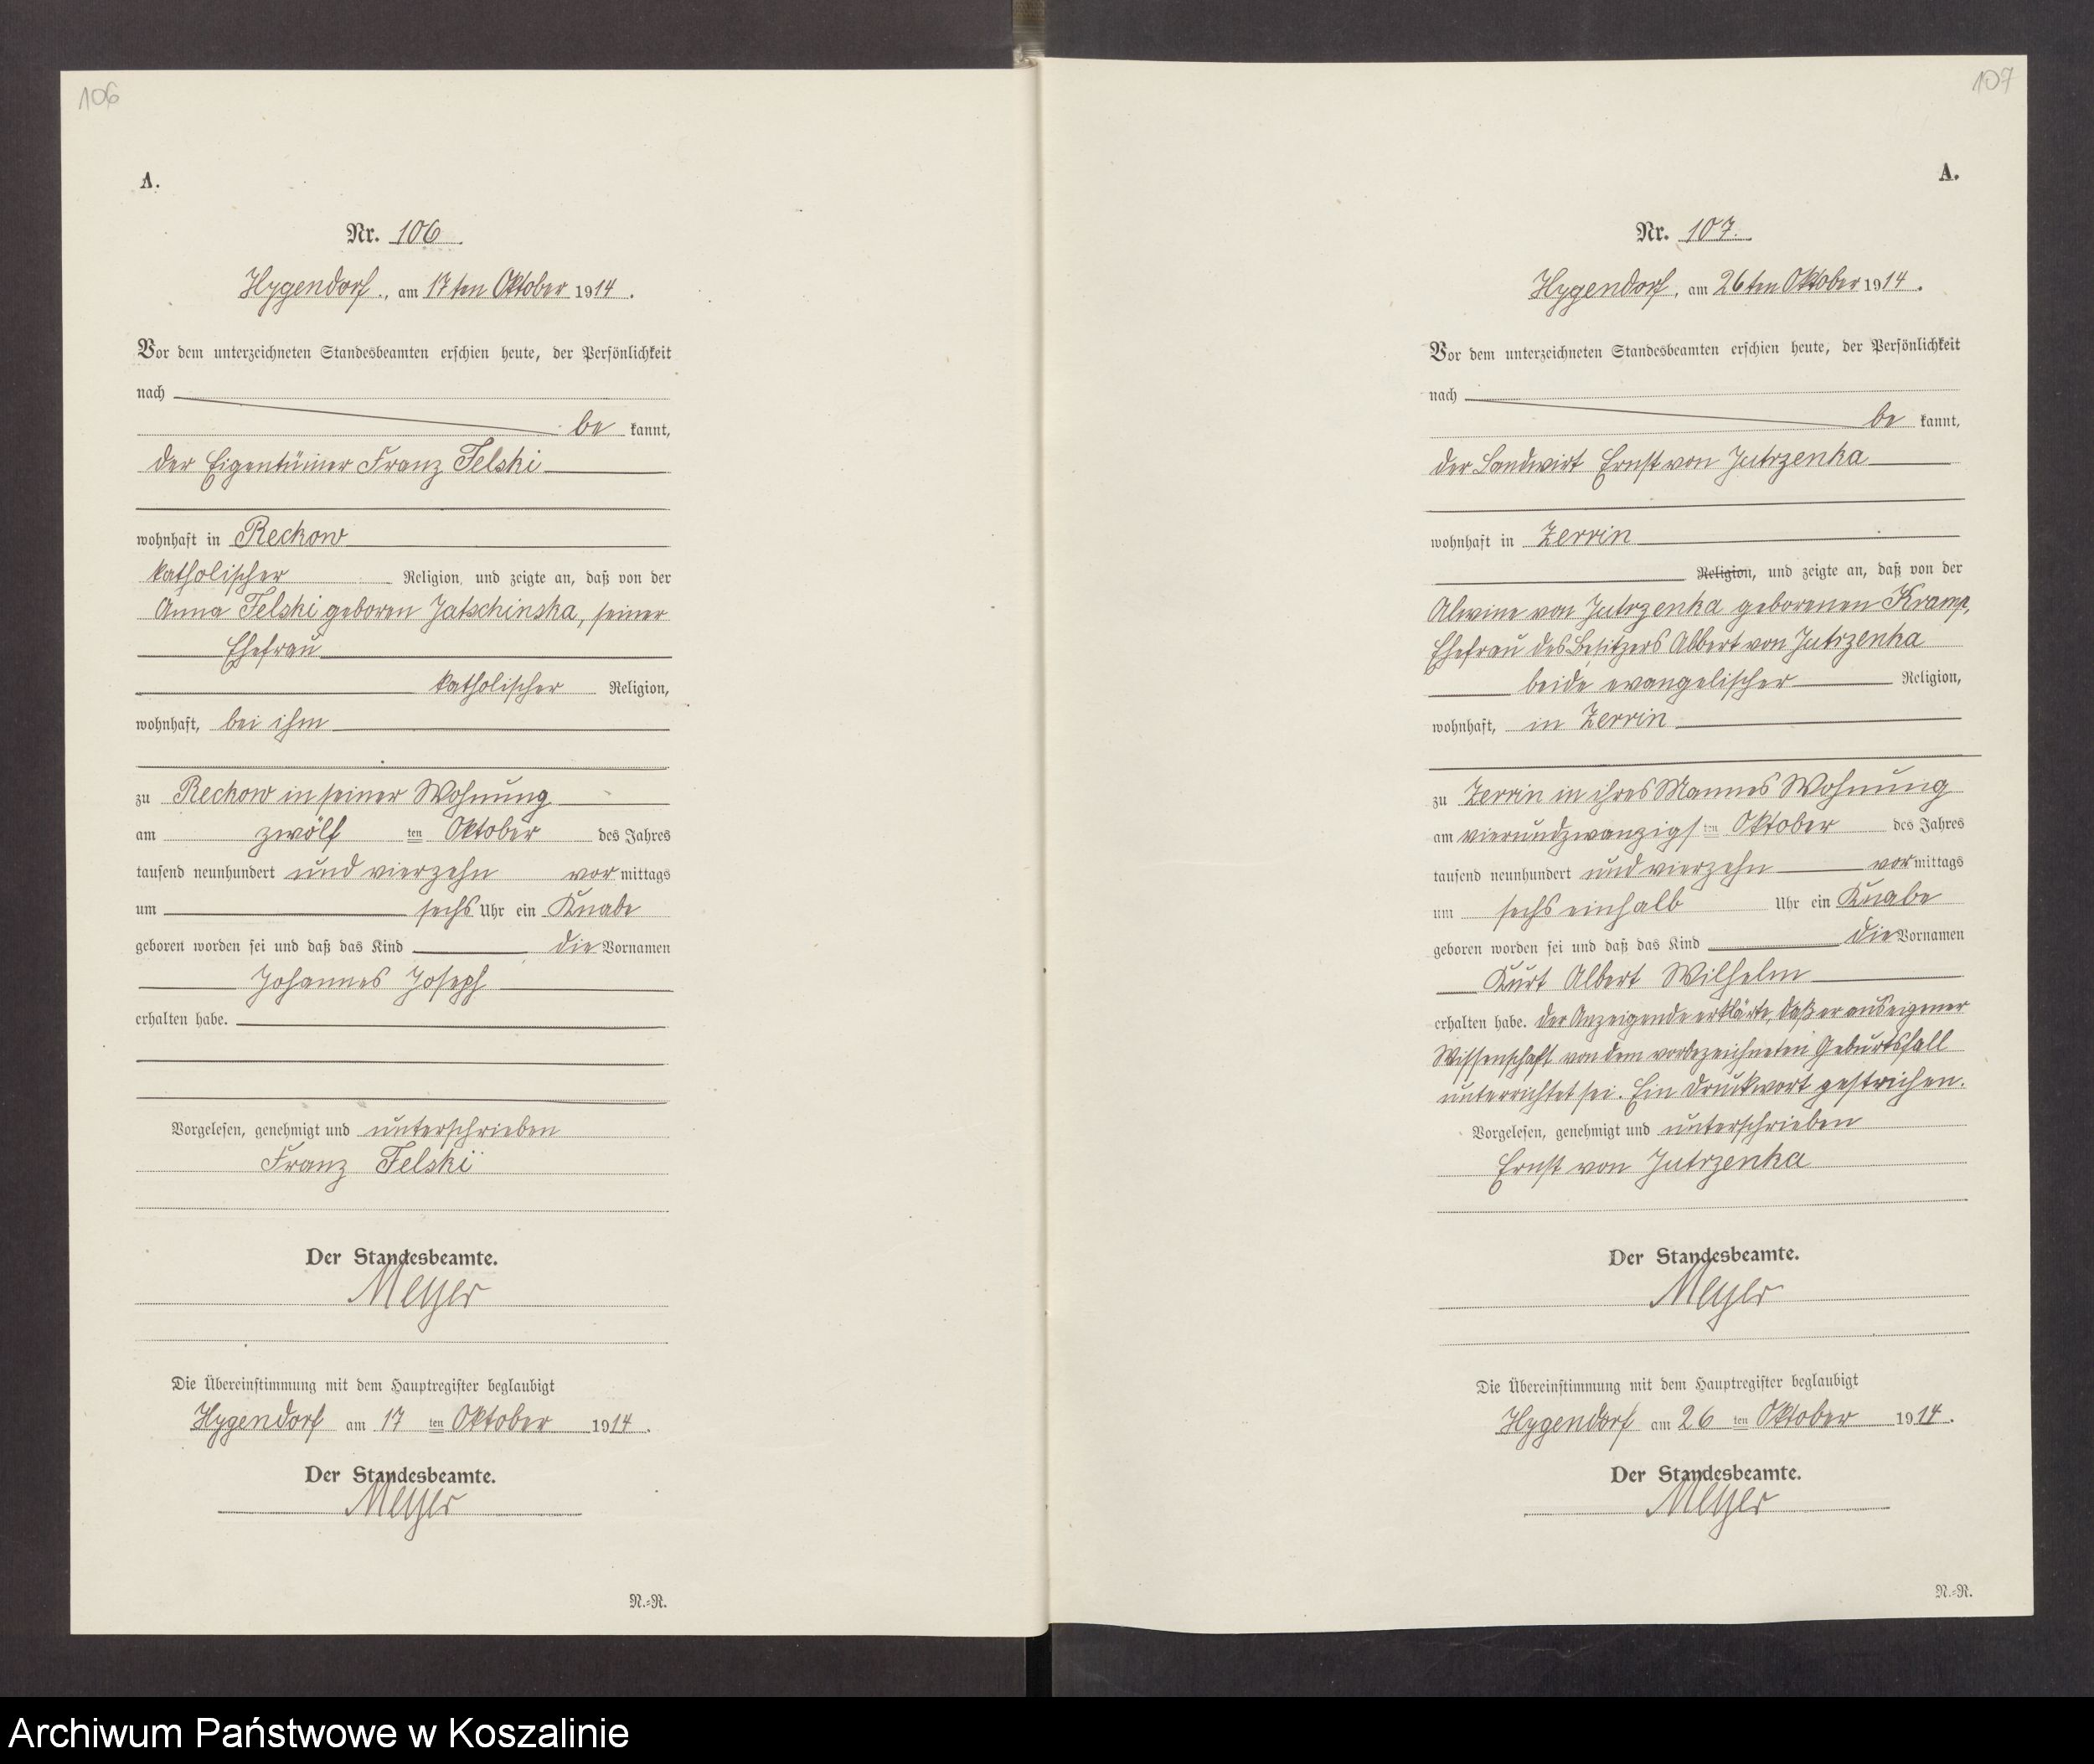 106
A.
Nr. 106
Hygendorf, am 17ten Oktober 1914.
Vor dem unterzeichneten Standesbeamten erschien heute, der Persönlichkeit
nach
be kannt,
der Eigentümer Franz Felski
wohnhaft in Reckow
katholischer Religion, und zeigte an, daß von der
Anna Felski geboren Jatschinska, seiner
Ehefrau
katholischer Religion,
wohnhaft, bei ihm
zu Reckow in seiner Wohnung
am zwölf ten Oktober des Jahres
tausend neunhundert und vierzehn vor mittags
um sechs Uhr ein Knabe
geboren worden sei und daß das Kind die Vornamen
Johannes Joseph
erhalten habe.
Vorgelesen, genehmigt und unterschrieben
Franz Felski
Der Standesbeamte.
Meyer
Die Übereinstimmung mit dem Hauptregister beglaubigt
Hygendorf am 17 ten Oktober 1914.
Der Standesbeamte.
Meyer
N.-R.
107
A.
Nr. 107.
Hygendorf, am 26ten Oktober 1914.
Vor dem unterzeichneten Standesbeamten erschien heute, der Persönlichkeit
nach
be kannt,
der Landwirt Ernst von Jutrzenka
wohnhaft in Zerrin
Religion, und zeigte an, daß von der
Alwine von Jutrzenka geborenen Kramp,
Ehefrau des Besitzers Albert von Jutrzenka
beide evangelischer Religion,
wohnhaft, in Zerrin
zu Zerrin in ihres Mannes Wohnung
am vierundzwanzigs ten Oktober des Jahres
tausend neunhundert und vierzehn vor mittags
um sechs einhalb Uhr ein Knabe
geboren worden sei und daß das Kind die Vornamen
Kurt Albert Wilhelm
erhalten habe. Der Anzeigende erklärte, daß er aus eigener
Wissenschaft von dem vorbezeichneten Geburtsfall
unterrichtet sei. Ein Druckwort gestrichen.
Vorgelesen, genehmigt und unterschrieben
Ernst von Jutrzenka
Der Standesbeamte.
Meyer
Die Übereinstimmung mit dem Hauptregister beglaubigt
Hygendorf am 26 ten Oktober 1914.
Der Standesbeamte.
Meyer
N.-R.
Archiwum Państwowe w Koszalinie